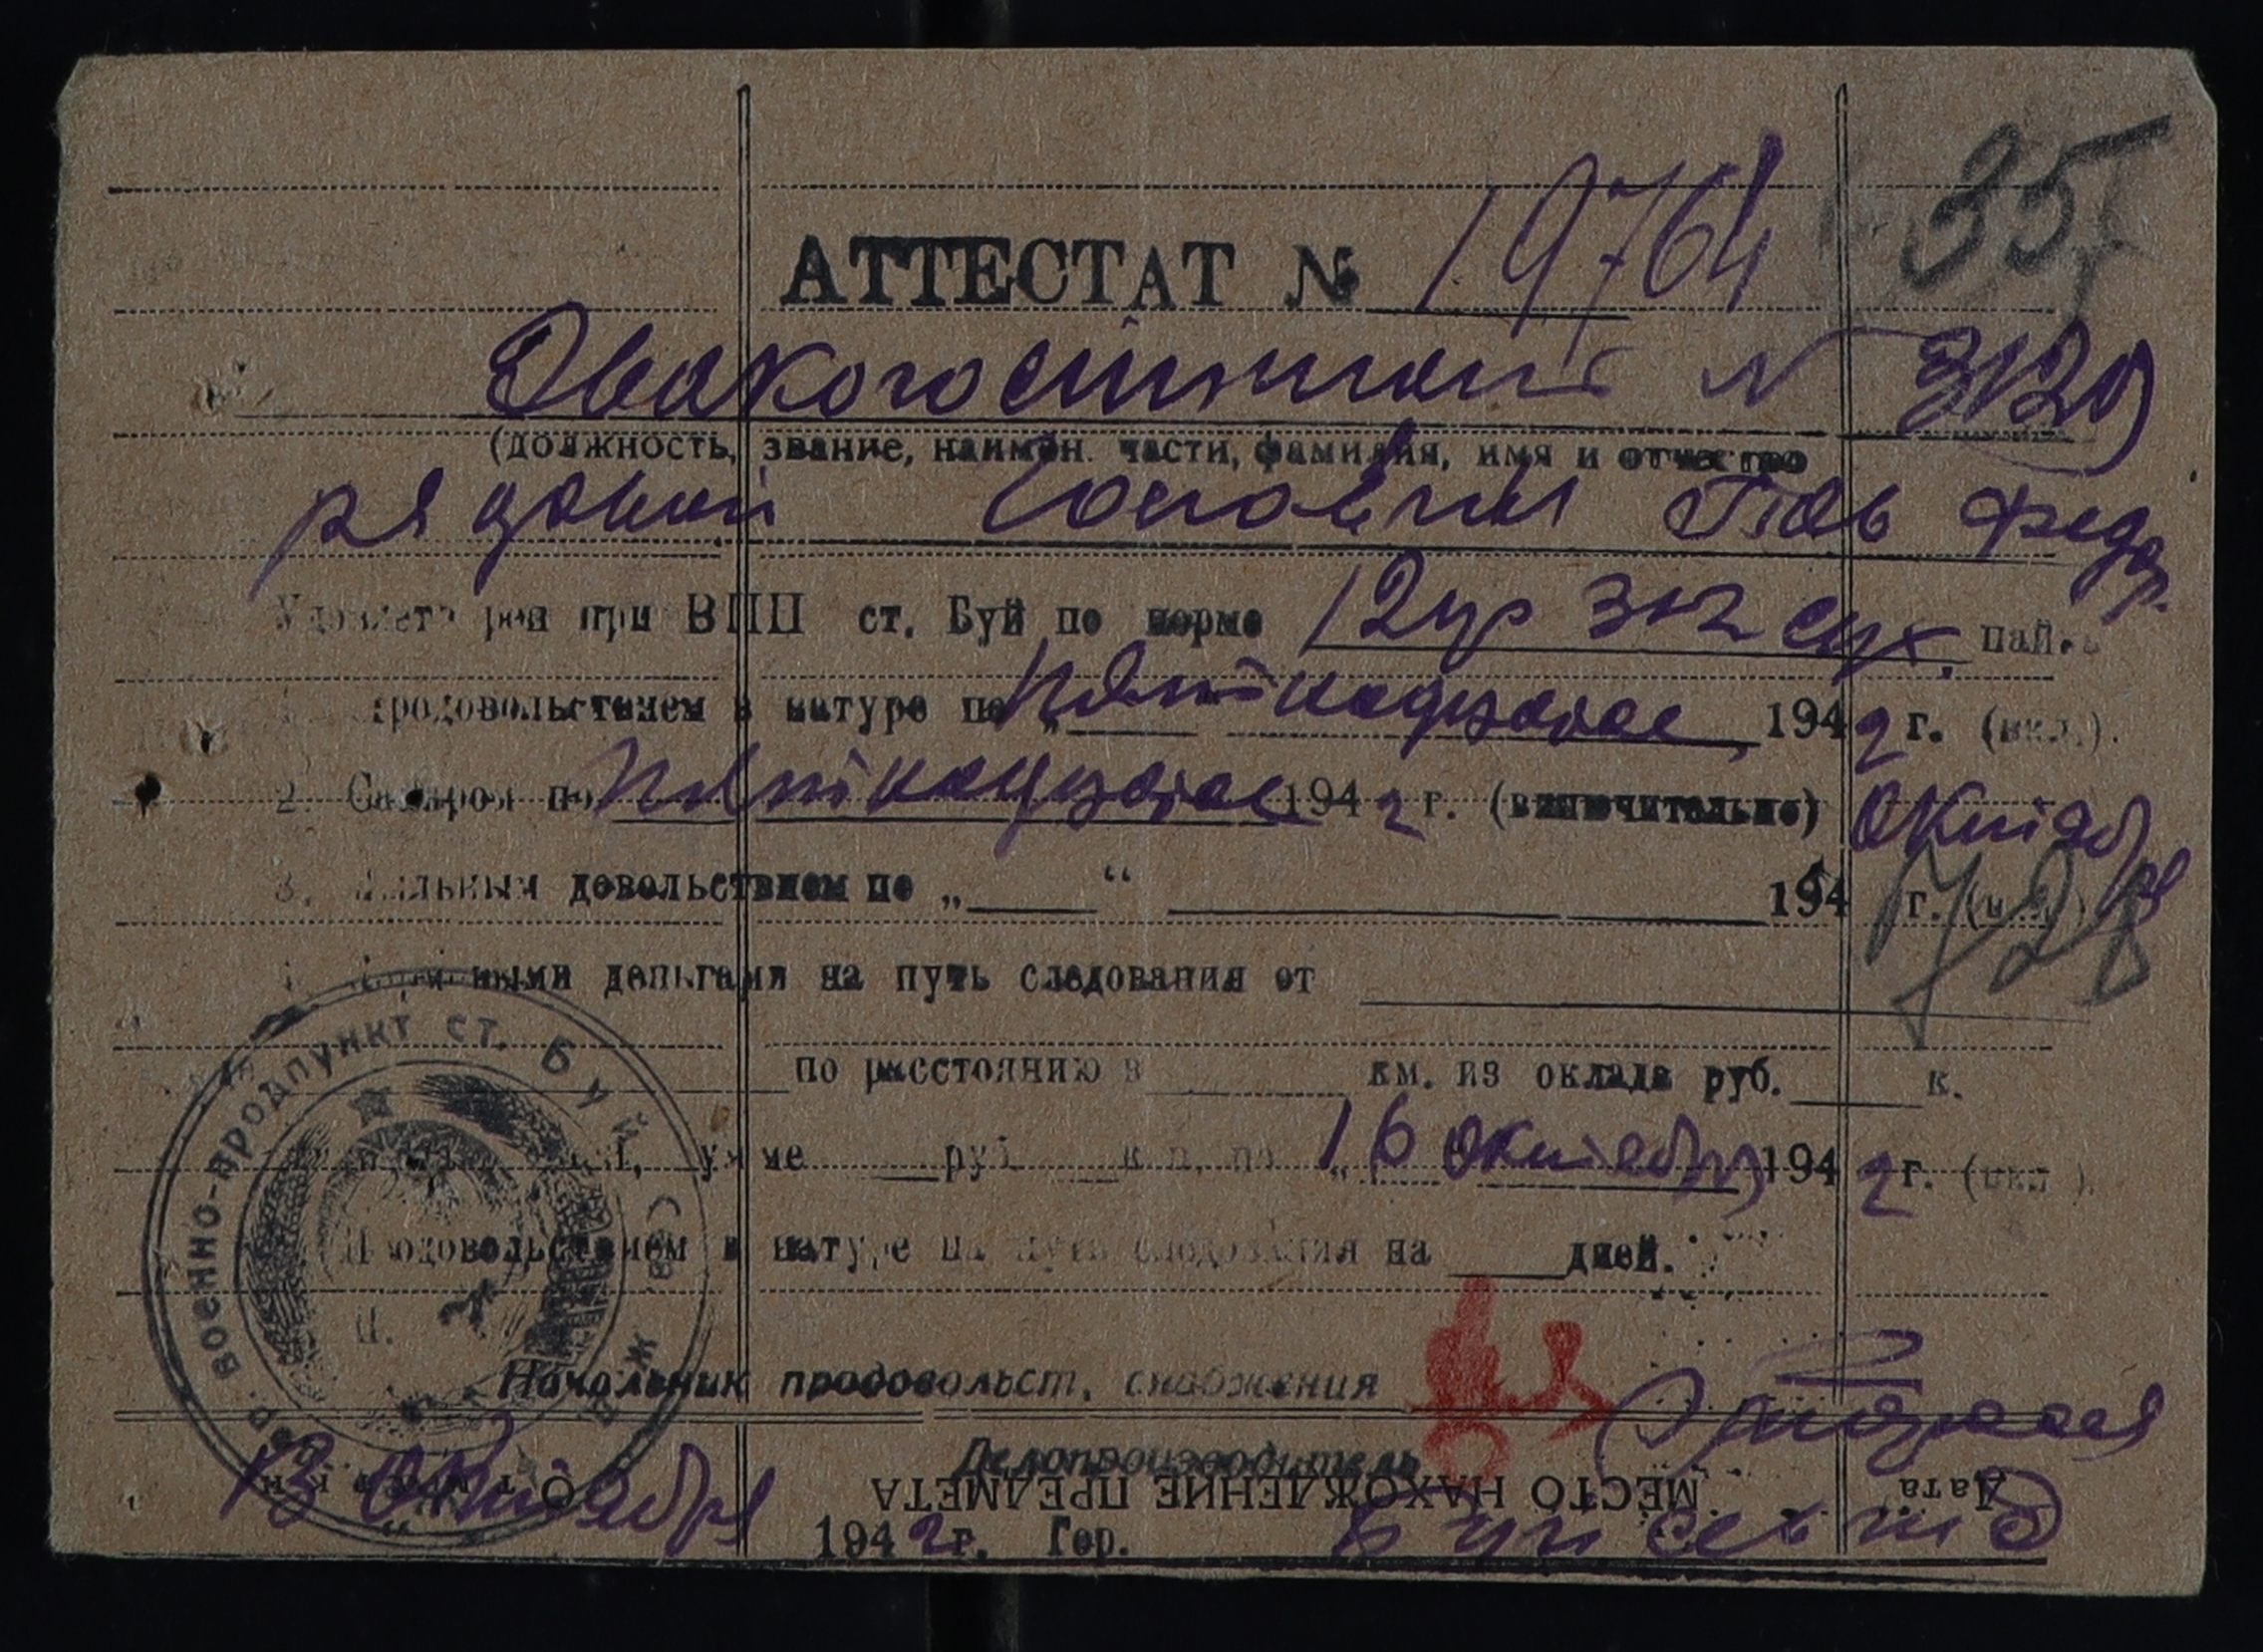 35
АТТЕСТАТ № 19764
Эвакогоспиталь № 3120
(должность, звание, наимен. части, фамилия, имя и отчество
рядовой Федор
Удовлетворен при ВПП ст. Буй по норме 12 сух. пайка
продовольствием в натуре по „ пятнадцатое 1942 г. (вкл.).
2. Сахаром по пятнадцатое 1942 г. (включительно) октября
3. довольствием по „ “ 194 г. (вкл.)
728
деньгами на путь следования от
по расстоянию в км. из оклада руб. к.
руб. коп. по „ 16 октября 1942 г. (вкл.).
Продовольствием в натуре на путь следования на дней.
Начальник продовольст. снабжения
Делопроизводитель
13 октября 1942 г. Гор. Буй
ВОЕННО-ПРОДПУНКТ СТ. БУЙ СЕВ. Ж. Д.
Дата
МЕСТО НАХОЖДЕНИЕ ПРЕДМЕТА
Отметки